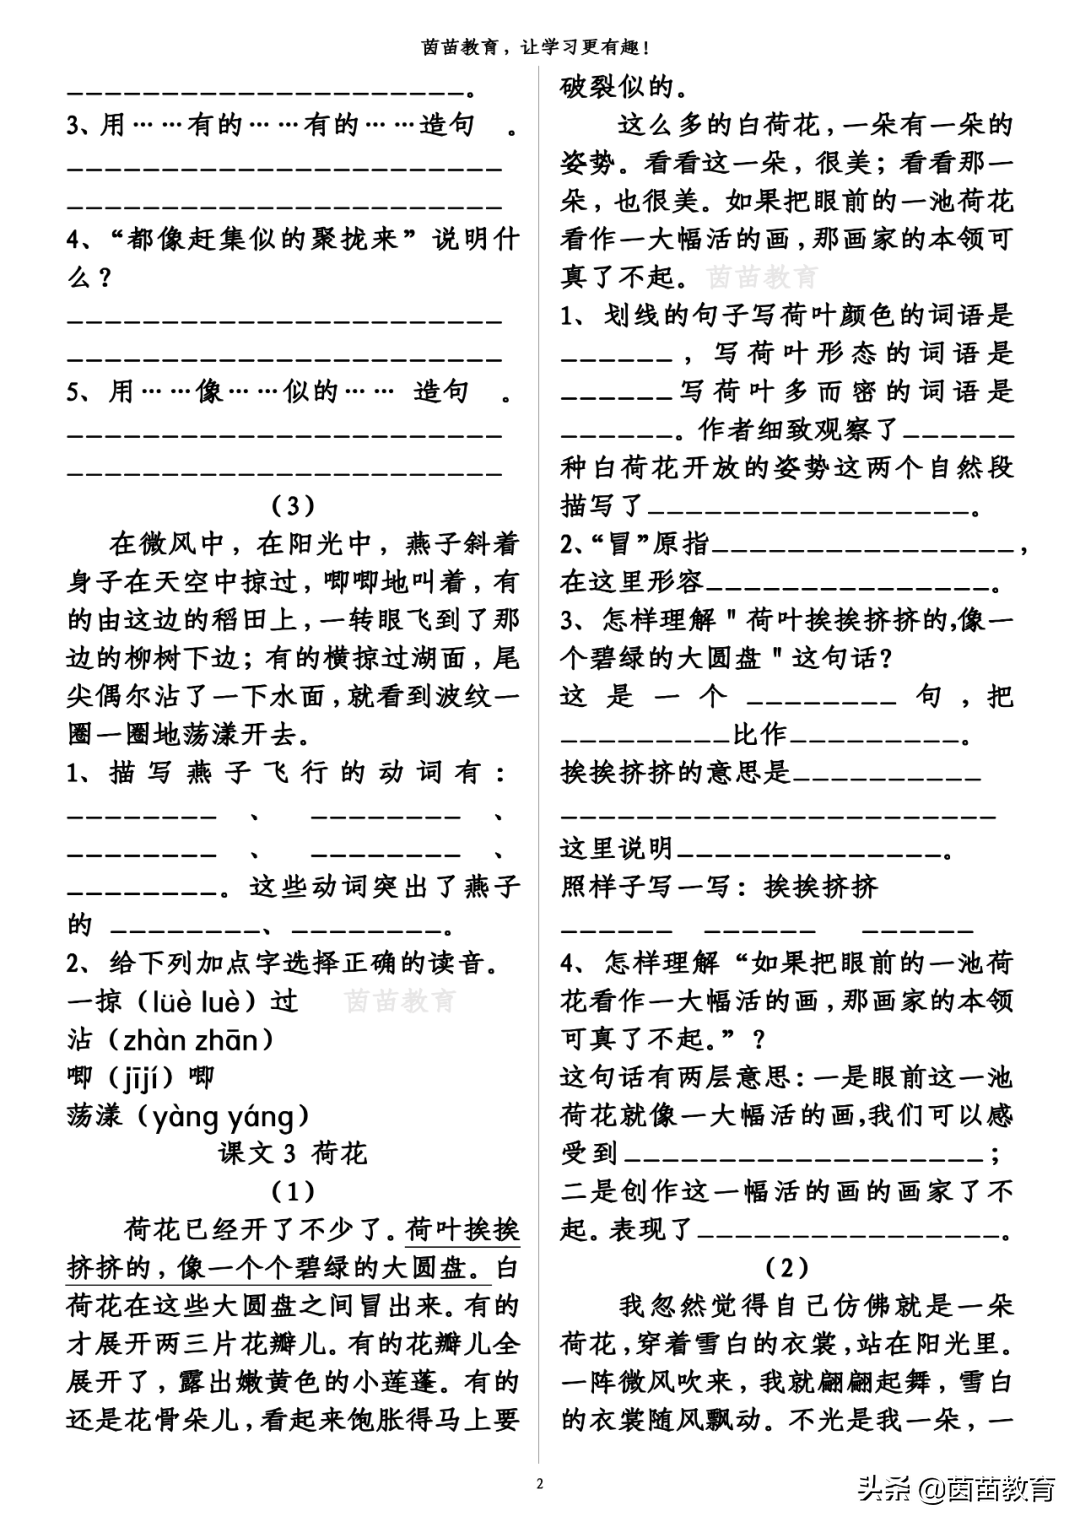 茵苗教育，让学习更有趣！
_____________________。
3、用……有的……有的……造句　。
_______________________
_______________________
4、“都像赶集似的聚拢来”说明什
么？
_______________________
_______________________
5、用……像……似的…… 造句　。
_______________________
_______________________
（3）
在微风中，在阳光中，燕子斜着
身子在天空中掠过，唧唧地叫着，有
的由这边的稻田上，一转眼飞到了那
边的柳树下边；有的横掠过湖面，尾
尖偶尔沾了一下水面，就看到波纹一
圈一圈地荡漾开去。
1、描写燕子飞行的动词有：
________、________、
________、________、
________。这些动词突出了燕子
的 ________、________。
2、给下列加点字选择正确的读音。
一掠（lüè luè）过 茵苗教育
沾（zhàn zhān）
唧（jījí）唧
荡漾（yàng yáng）
课文3 荷花
（1）
荷花已经开了不少了。荷叶挨挨
挤挤的，像一个个碧绿的大圆盘。白
荷花在这些大圆盘之间冒出来。有的
才展开两三片花瓣儿。有的花瓣儿全
展开了，露出嫩黄色的小莲蓬。有的
还是花骨朵儿，看起来饱胀得马上要
破裂似的。
这么多的白荷花，一朵有一朵的
姿势。看看这一朵，很美；看看那一
朵，也很美。如果把眼前的一池荷花
看作一大幅活的画，那画家的本领可
真了不起。茵苗教育
1、划线的句子写荷叶颜色的词语是
______，写荷叶形态的词语是
______写荷叶多而密的词语是
______。作者细致观察了______
种白荷花开放的姿势这两个自然段
描写了_________________。
2、“冒”原指________________，
在这里形容_______________。
3、怎样理解"荷叶挨挨挤挤的,像一
个碧绿的大圆盘"这句话？
这是一个________句，把
_________比作_________。
挨挨挤挤的意思是__________
_______________________
这里说明______________。
照样子写一写：挨挨挤挤
______ ______ ______
4、怎样理解“如果把眼前的一池荷
花看作一大幅活的画，那画家的本领
可真了不起。”？
这句话有两层意思：一是眼前这一池
荷花就像一大幅活的画,我们可以感
受到___________________；
二是创作这一幅活的画的画家了不
起。表现了________________。
（2）
我忽然觉得自己仿佛就是一朵
荷花，穿着雪白的衣裳，站在阳光里。
一阵微风吹来，我就翩翩起舞，雪白
的衣裳随风飘动。不光是我一朵，一
2
头条 @茵苗教育